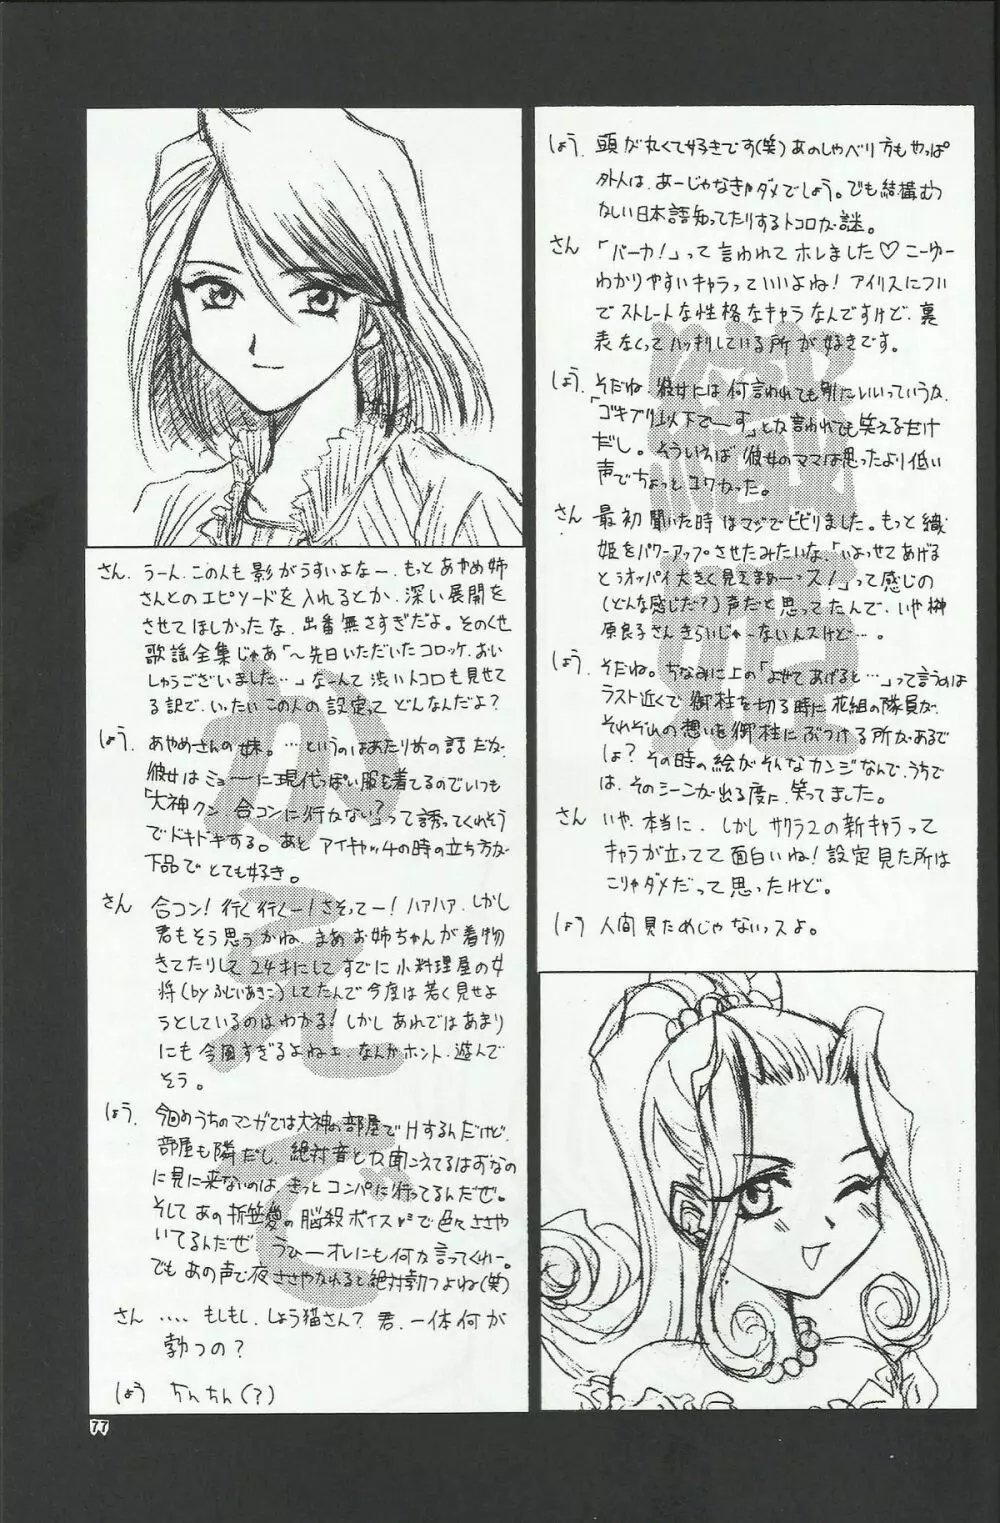 しょう. 頭が丸くて好きです(笑)あのしゃべり方もやっぱ
外人は、あーじゃなきゃダメでしょう。でも結構むつ
かしい日本語知ってたりするトコロが謎。
さん 「バーカ!」って言われてホレました♡こーゆー
わかりやすいキャラっていいよね! アイリスについ
でストレートな性格なキャラなんですけど、裏
表なくってハッキリしている所が好きです。
しょう. そだね、彼女には何言われても別にいいっていうか、
「ゴキブリ以下でーす」とか言われても笑えるだけ
だし。そういえば彼女のママは思ったより低い
声でちょっとコワかった。
さん 最初聞いた時はマジでビビりました。もっと織
姫をパワーアップさせたみたいな、「いよせてあげる
とぅオッパイ大きく見えまぁーっス!」って感じの
(どんな感じだ?)声だと思ってたんで、いや榊
原良子さんきらいじゃーないんスけど…。
しょう. そだね。ちなみに上の「よせてあげると…」って言うのは
ラスト近くで御柱を切る時に花組の隊員が、
それぞれの想いを御柱にぶつける所があるで
しょ? その時の絵がそんなカンジなんで、うちで
は、そのシーンが出る度に、笑ってました。
さん いや、本当に、しかしサクラ2の新キャラって
キャラが立ってて面白いね! 設定見た所は
こりゃダメだって思ったけど。
しょう 人間見ためじゃないっスよ。
さん. うーん、この人も影がうすいよなー、もっとあやめ姉
さんとのエピソードを入れるとか、深い展開を
させてほしかったな、出番無さすぎだよ。そのくせ
歌謡全集じゃあ「~先日いただいたコロッケ、おい
しゅうございました…」なーんて渋いトコロも見せて
る訳で、いったいこの人の設定ってどんなんだよ?
しょう. あやめさんの妹。…というのはあたりめの話だが、
彼女はミョーに現代っぽい服も着てるのでいつも
「大神クン、合コンに行かない?」って誘ってくれそう
でドキドキする。あと アイキャッチの時の立ち方が
下品でとても好き。
さん 合コン! 行く行くー! さそってー! ハァハァ、しかし
君もそう思うかね、まあお姉ちゃんが着物
きてたりして24才にしてすでに小料理屋の女
将(byふじいあきこ)してたんで今度は若く見せよ
うとしているのはわかる! しかしあれではあまり
にも今風すぎるよねェ、なんかホント、遊んで
そう。
しょう. 今回のうちのマンガでは大神の部屋でHするんだけど、
部屋も隣だし、絶対音とか聞こえてるはずなの
に見に来ないのは、きっとコンパに行ってるんだぜ。
そしてあの折笠愛の脳殺ボイスで色々ささや
いてるんだぜ うひーオレにも何か言ってくれー。
でもあの声で夜ささやかれると絶対勃つよね(笑)
さん …. もしもし、しょう猫さん? 君、一体何が
勃つの?
しょう ちんちん(?)
織姫
かえで
77